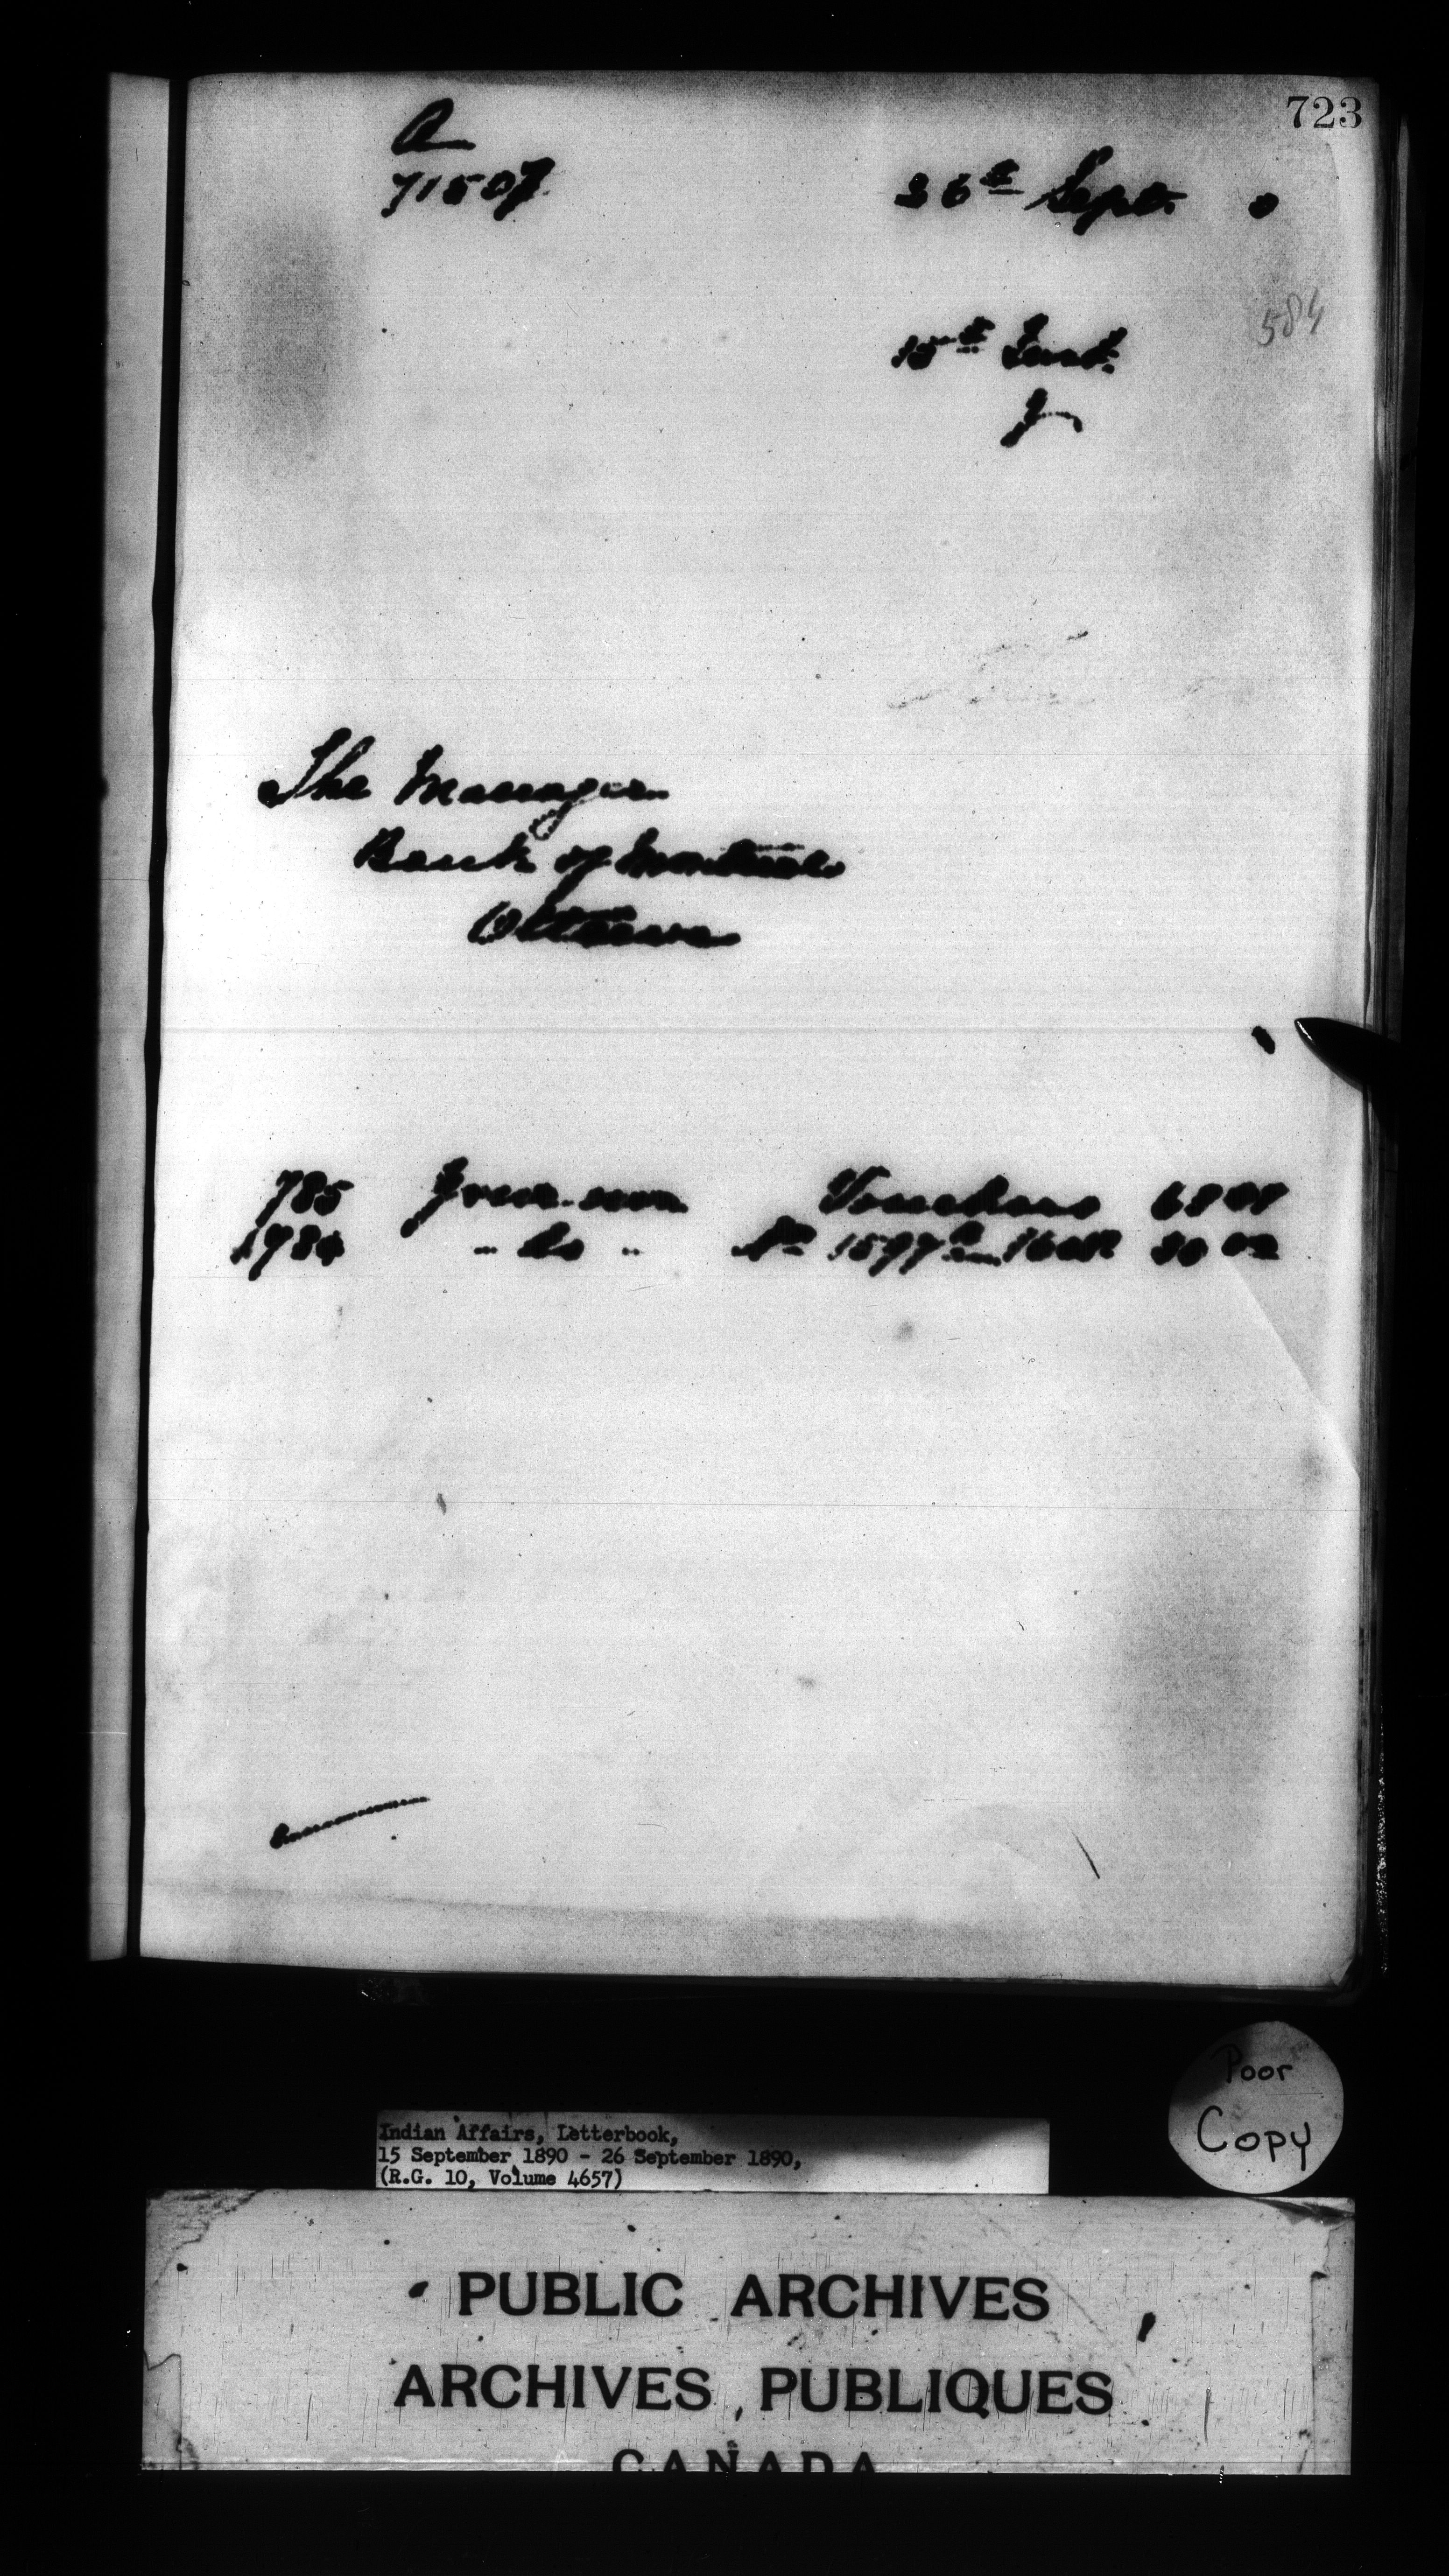 723
A
71507
26th Sept. 0
584
15th Inst.
The Manager
Bank of Montreal
Ottawa
785 Vouchers
1984 " Do " No 1597
Poor
Copy
Indian Affairs, Letterbook,
15 September 1890 - 26 September 1890,
(R.G. 10, Volume 4657)
PUBLIC ARCHIVES
ARCHIVES PUBLIQUES
CANADA